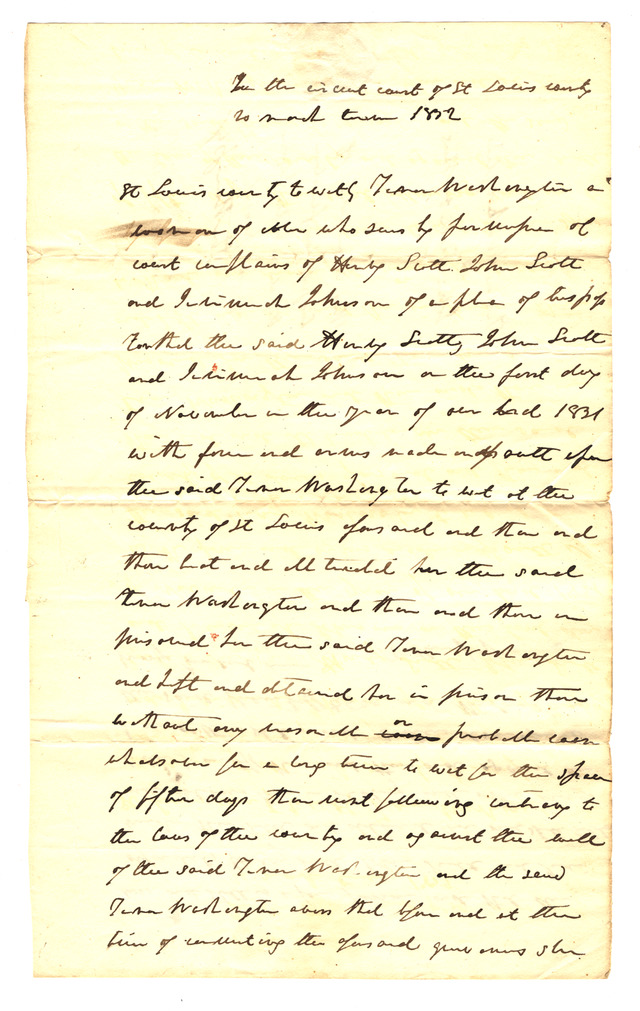 In the circuit court of St Louis county
to march term 1832
St Louis county to wit Tenor Washington a
woman of color who sues by permission of
court complains of Henry Scott John Scott
and Jerimiah Johnson of a plea of trespass
For that the said Henry Scott John Scott
and Jerimiah Johnson on the first day
of November in the year of our Lord 1831
with force and arms made assault upon
the said Tenor Washington to wit at the
county of St Louis aforesaid and then and
there beat and ill treated her the said
Tenor Washington and then and there im
prisoned her the said Tenor Washington
and kept and detained her in prison there
without any reasonable or probable cause
whatsoever for a long time to wit for the space
of fifteen days then next following contrary to
the laws of the county and against the will
of the said Tenor Washington and the said
Tenor Washington avers that before and at the
time of committing the aforesaid grievances she